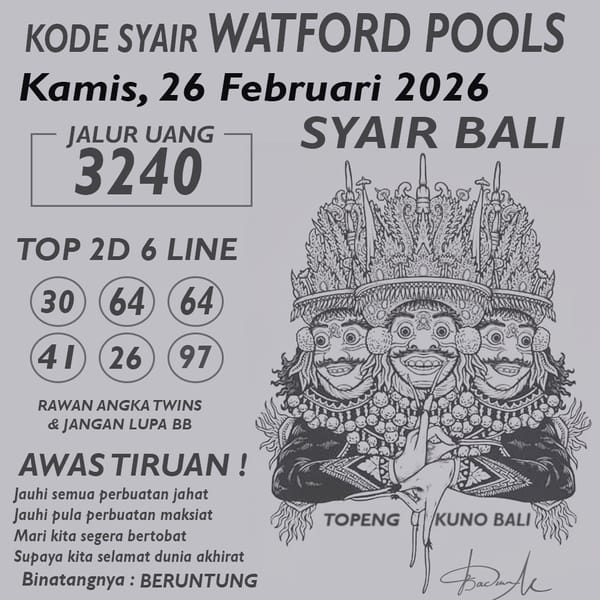 KODE SYAIR WATFORD POOLS
Kamis, 26 Februari 2026
JALUR UANG
3240
SYAIR BALI
TOP 2D 6 LINE
30 64 64
41 26 97
RAWAN ANGKA TWINS
& JANGAN LUPA BB
AWAS TIRUAN !
Jauhi semua perbuatan jahat
Jauhi pula perbuatan maksiat
Mari kita segera bertobat
Supaya kita selamat dunia akhirat
Binatangnya : BERUNTUNG
TOPENG KUNO BALI